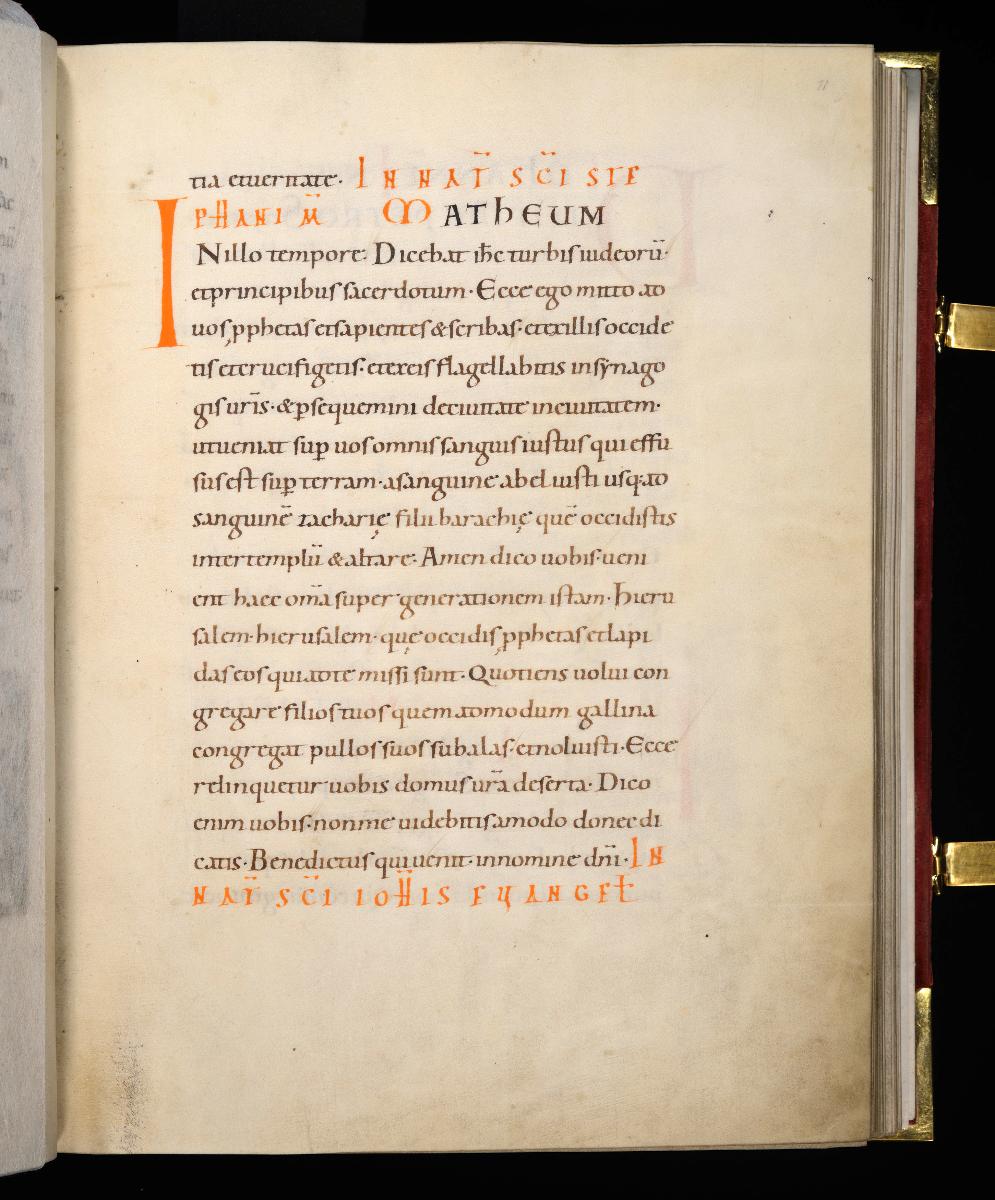 tia et ueritate. IN NAT̄ SC̄I STE
PHANI M̄ MATHEUM
INillo tempore. Dicebat ih̄c turbis iudeorū.
et principibus sacerdotum. Ecce ego mitto ad
uos ꝓphetas et sapientes & scribas. et ex illis occide
tis et crucifigetis. et ex eis flagellabitis in synago
gis ur̄is. & ꝑsequemini de ciuitate in ciuitatem.
ut ueniat suꝑ uos omnis sanguis iustus qui effu
sus est suꝑ terram. a sanguine abel iusti usq; ad
sanguinē zacharię filii barachię quē occidistis
inter templū & altare. Amen dico uobis. ueni
ent haec om̄a super generationem istam. hieru
salem. hierusalem. quę occidis ꝓphetas et lapi
das eos qui ad te missi sunt. Quotiens uolui con
gregare filios tuos quemadmodum gallina
congregat pullos suos sub alas. et noluisti. Ecce
relinquetur uobis domus ur̄a deserta. Dico
enim uobis. non me uidebitis amodo donec di
catis. Benedictus qui uenit. in nomine dn̄i. IN
NAT̄ SC̄I IOH̄IS EUANGEƚ